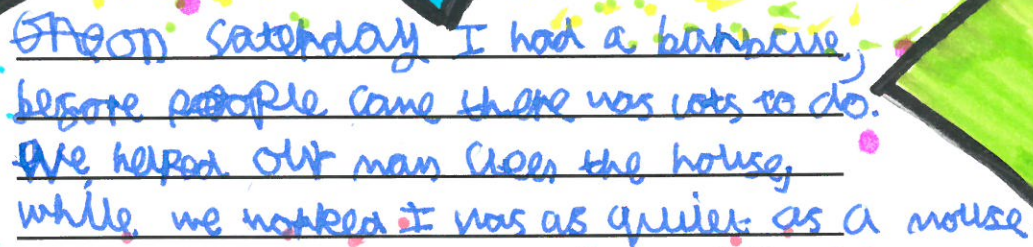 on saterday I had a barbecue,
before people came there was lots to do.
We helped our mam cleen the house,
while we worked I was as quiet as a mouse